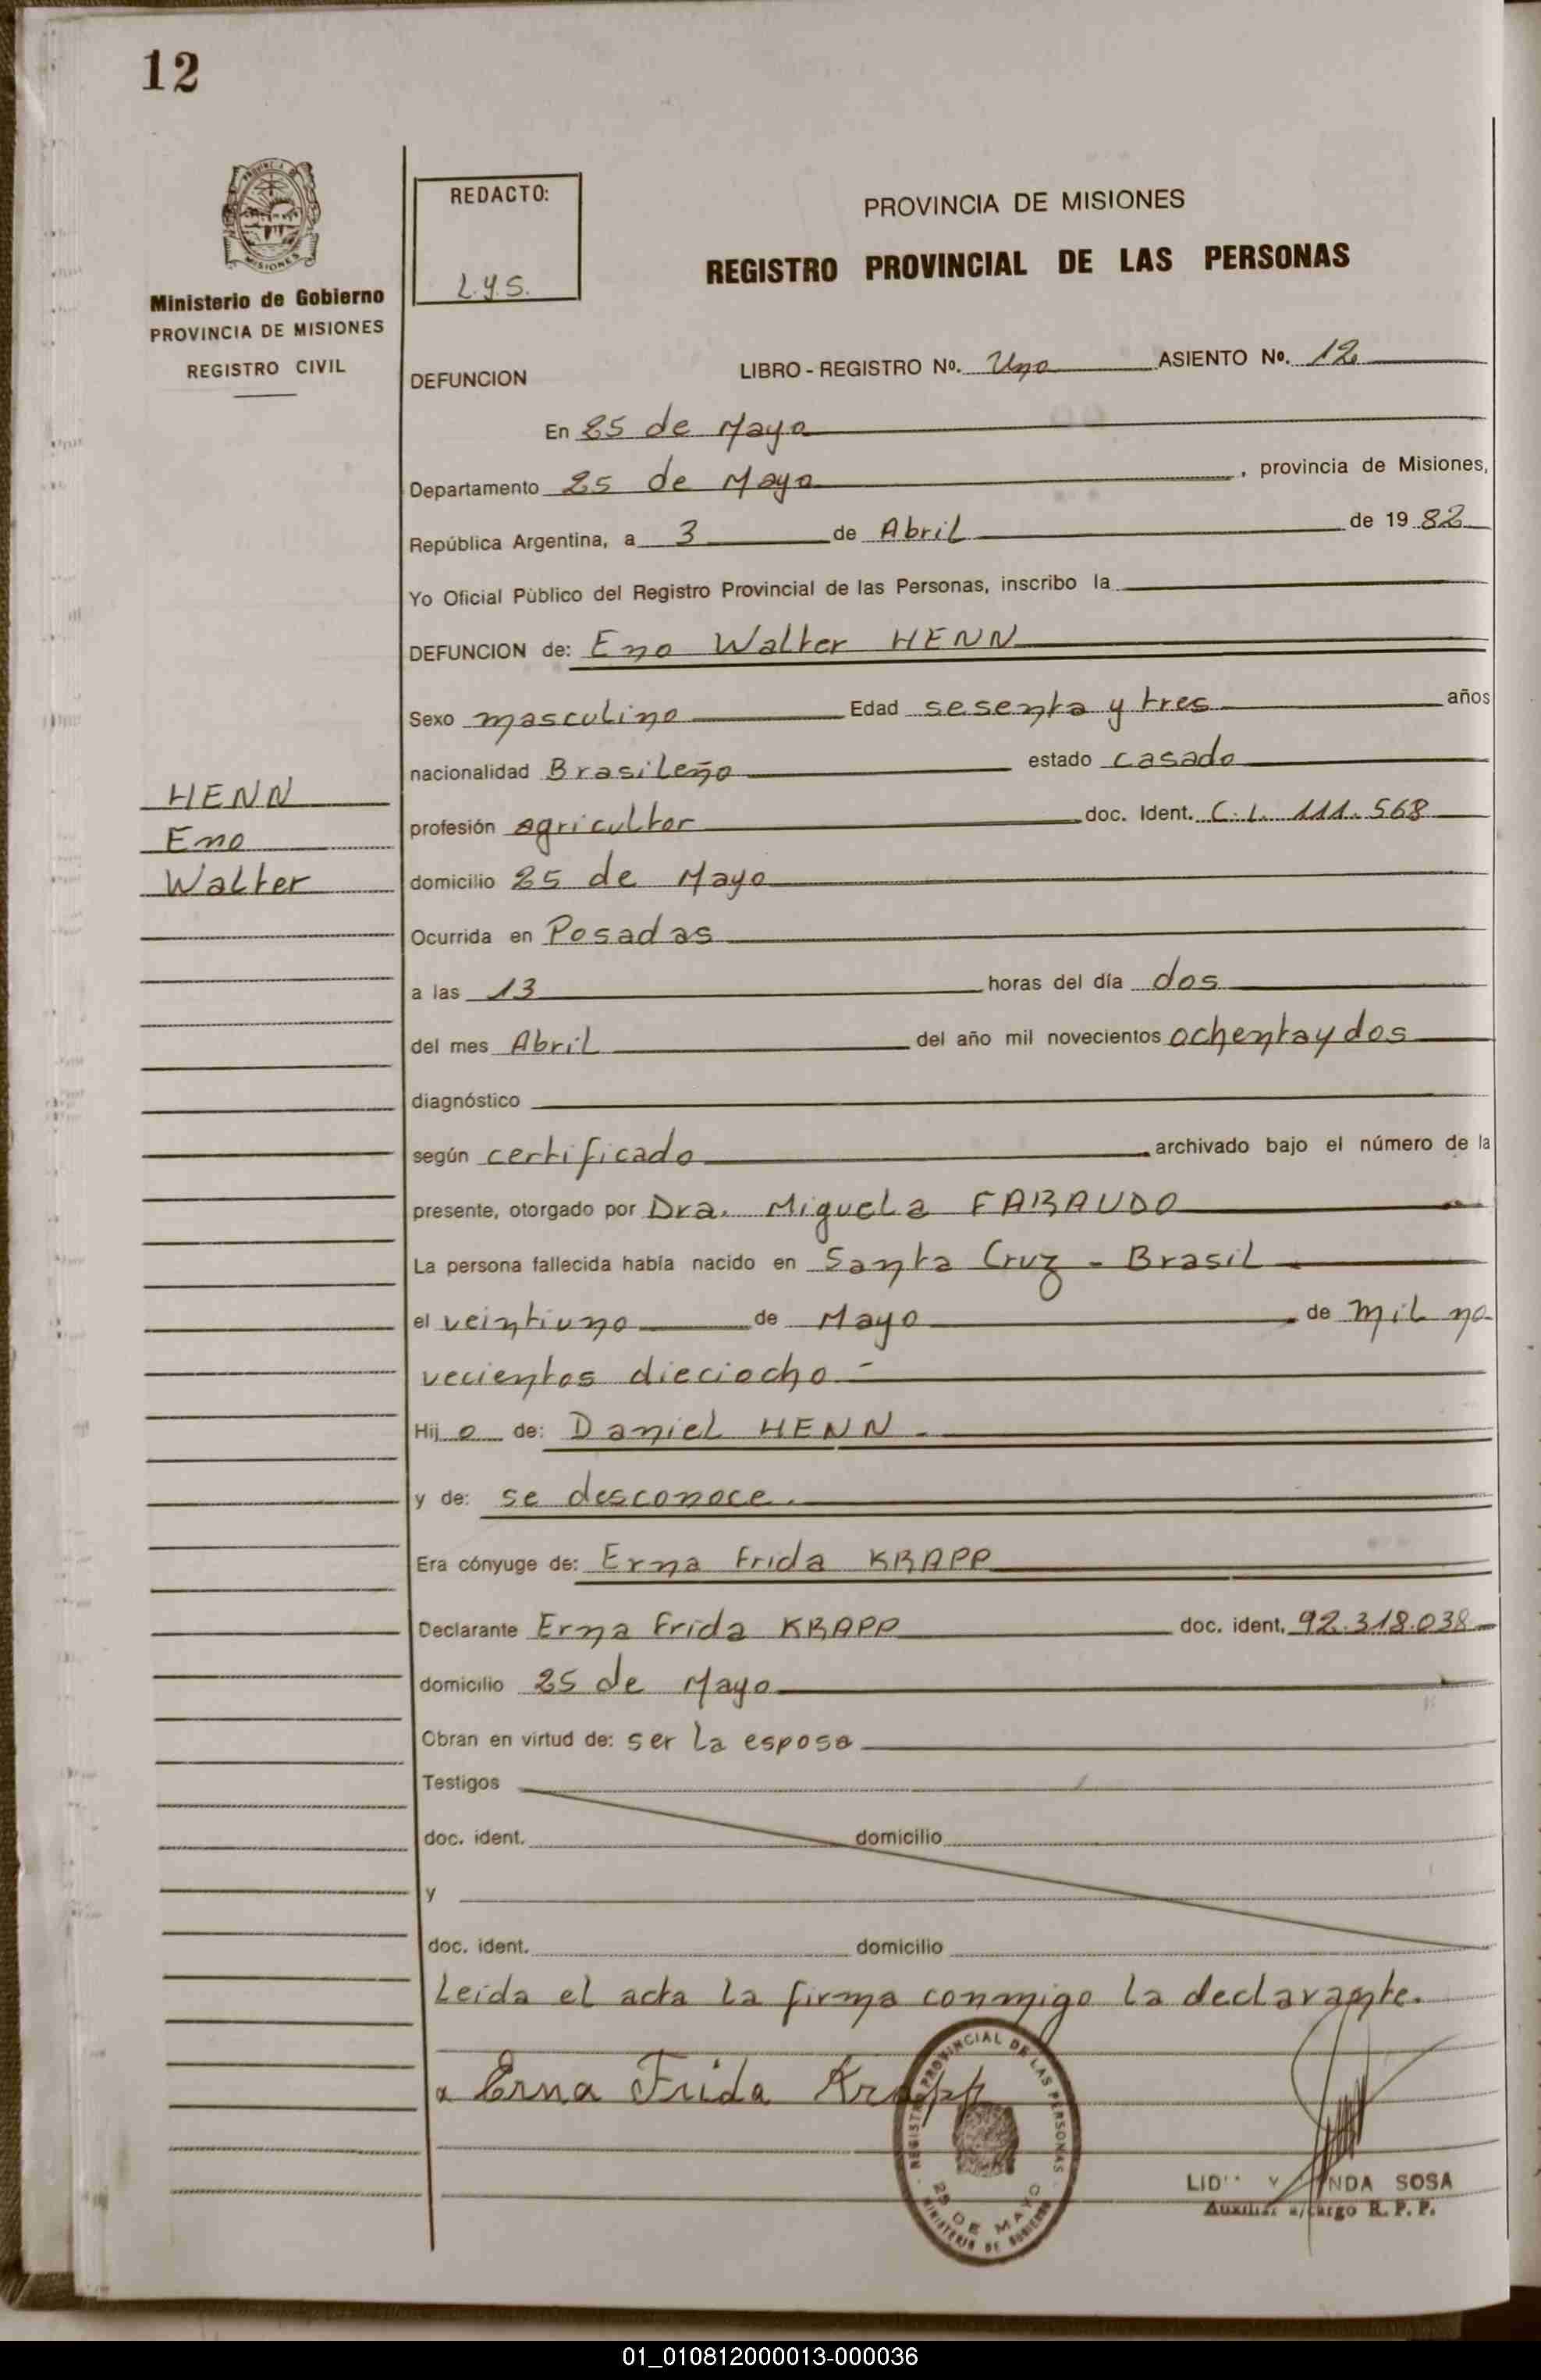 12
PROVINCIA DE MISIONES
Ministerio de Gobierno
PROVINCIA DE MISIONES
REGISTRO CIVIL
REDACTO:
L.y.S.
PROVINCIA DE MISIONES
REGISTRO PROVINCIAL DE LAS PERSONAS
DEFUNCION LIBRO - REGISTRO No. Uno ASIENTO No. 12
En 25 de Mayo
Departamento 25 de Mayo , provincia de Misiones,
República Argentina, a 3 de Abril de 19 82
Yo Oficial Público del Registro Provincial de las Personas, inscribo la
DEFUNCION de: Eno Walter HENN
Sexo masculino Edad sesenta y tres años
nacionalidad Brasileño estado casado
profesión agricultor doc. Ident. C.I. 111.568
domicilio 25 de Mayo
HENN
Eno
Walter
Ocurrida en Posadas
a las 13 horas del día dos
del mes Abril del año mil novecientos ochenta y dos
diagnóstico
según certificado archivado bajo el número de la
presente, otorgado por Dra. Miguela FARAUDO
La persona fallecida había nacido en Santa Cruz - Brasil
el veintiuno de Mayo de mil no-
vecientos dieciocho -
Hij o de: Daniel HENN -
y de: se desconoce.
Era cónyuge de: Erna Frida KRAPP
Declarante Erna Frida KRAPP doc. ident. 92.318.038
domicilio 25 de Mayo
Obran en virtud de: ser la esposa
Testigos
doc. ident. domicilio
y
doc. ident. domicilio
Leída el acta la firma conmigo la declarante.
Erna Frida Krapp
REGISTRO PROVINCIAL DE LAS PERSONAS
25 DE MAYO
MINISTERIO DE GOBIERNO
NDA SOSA
Auxiliar a/cargo R. P. P.
01_010812000013-000036